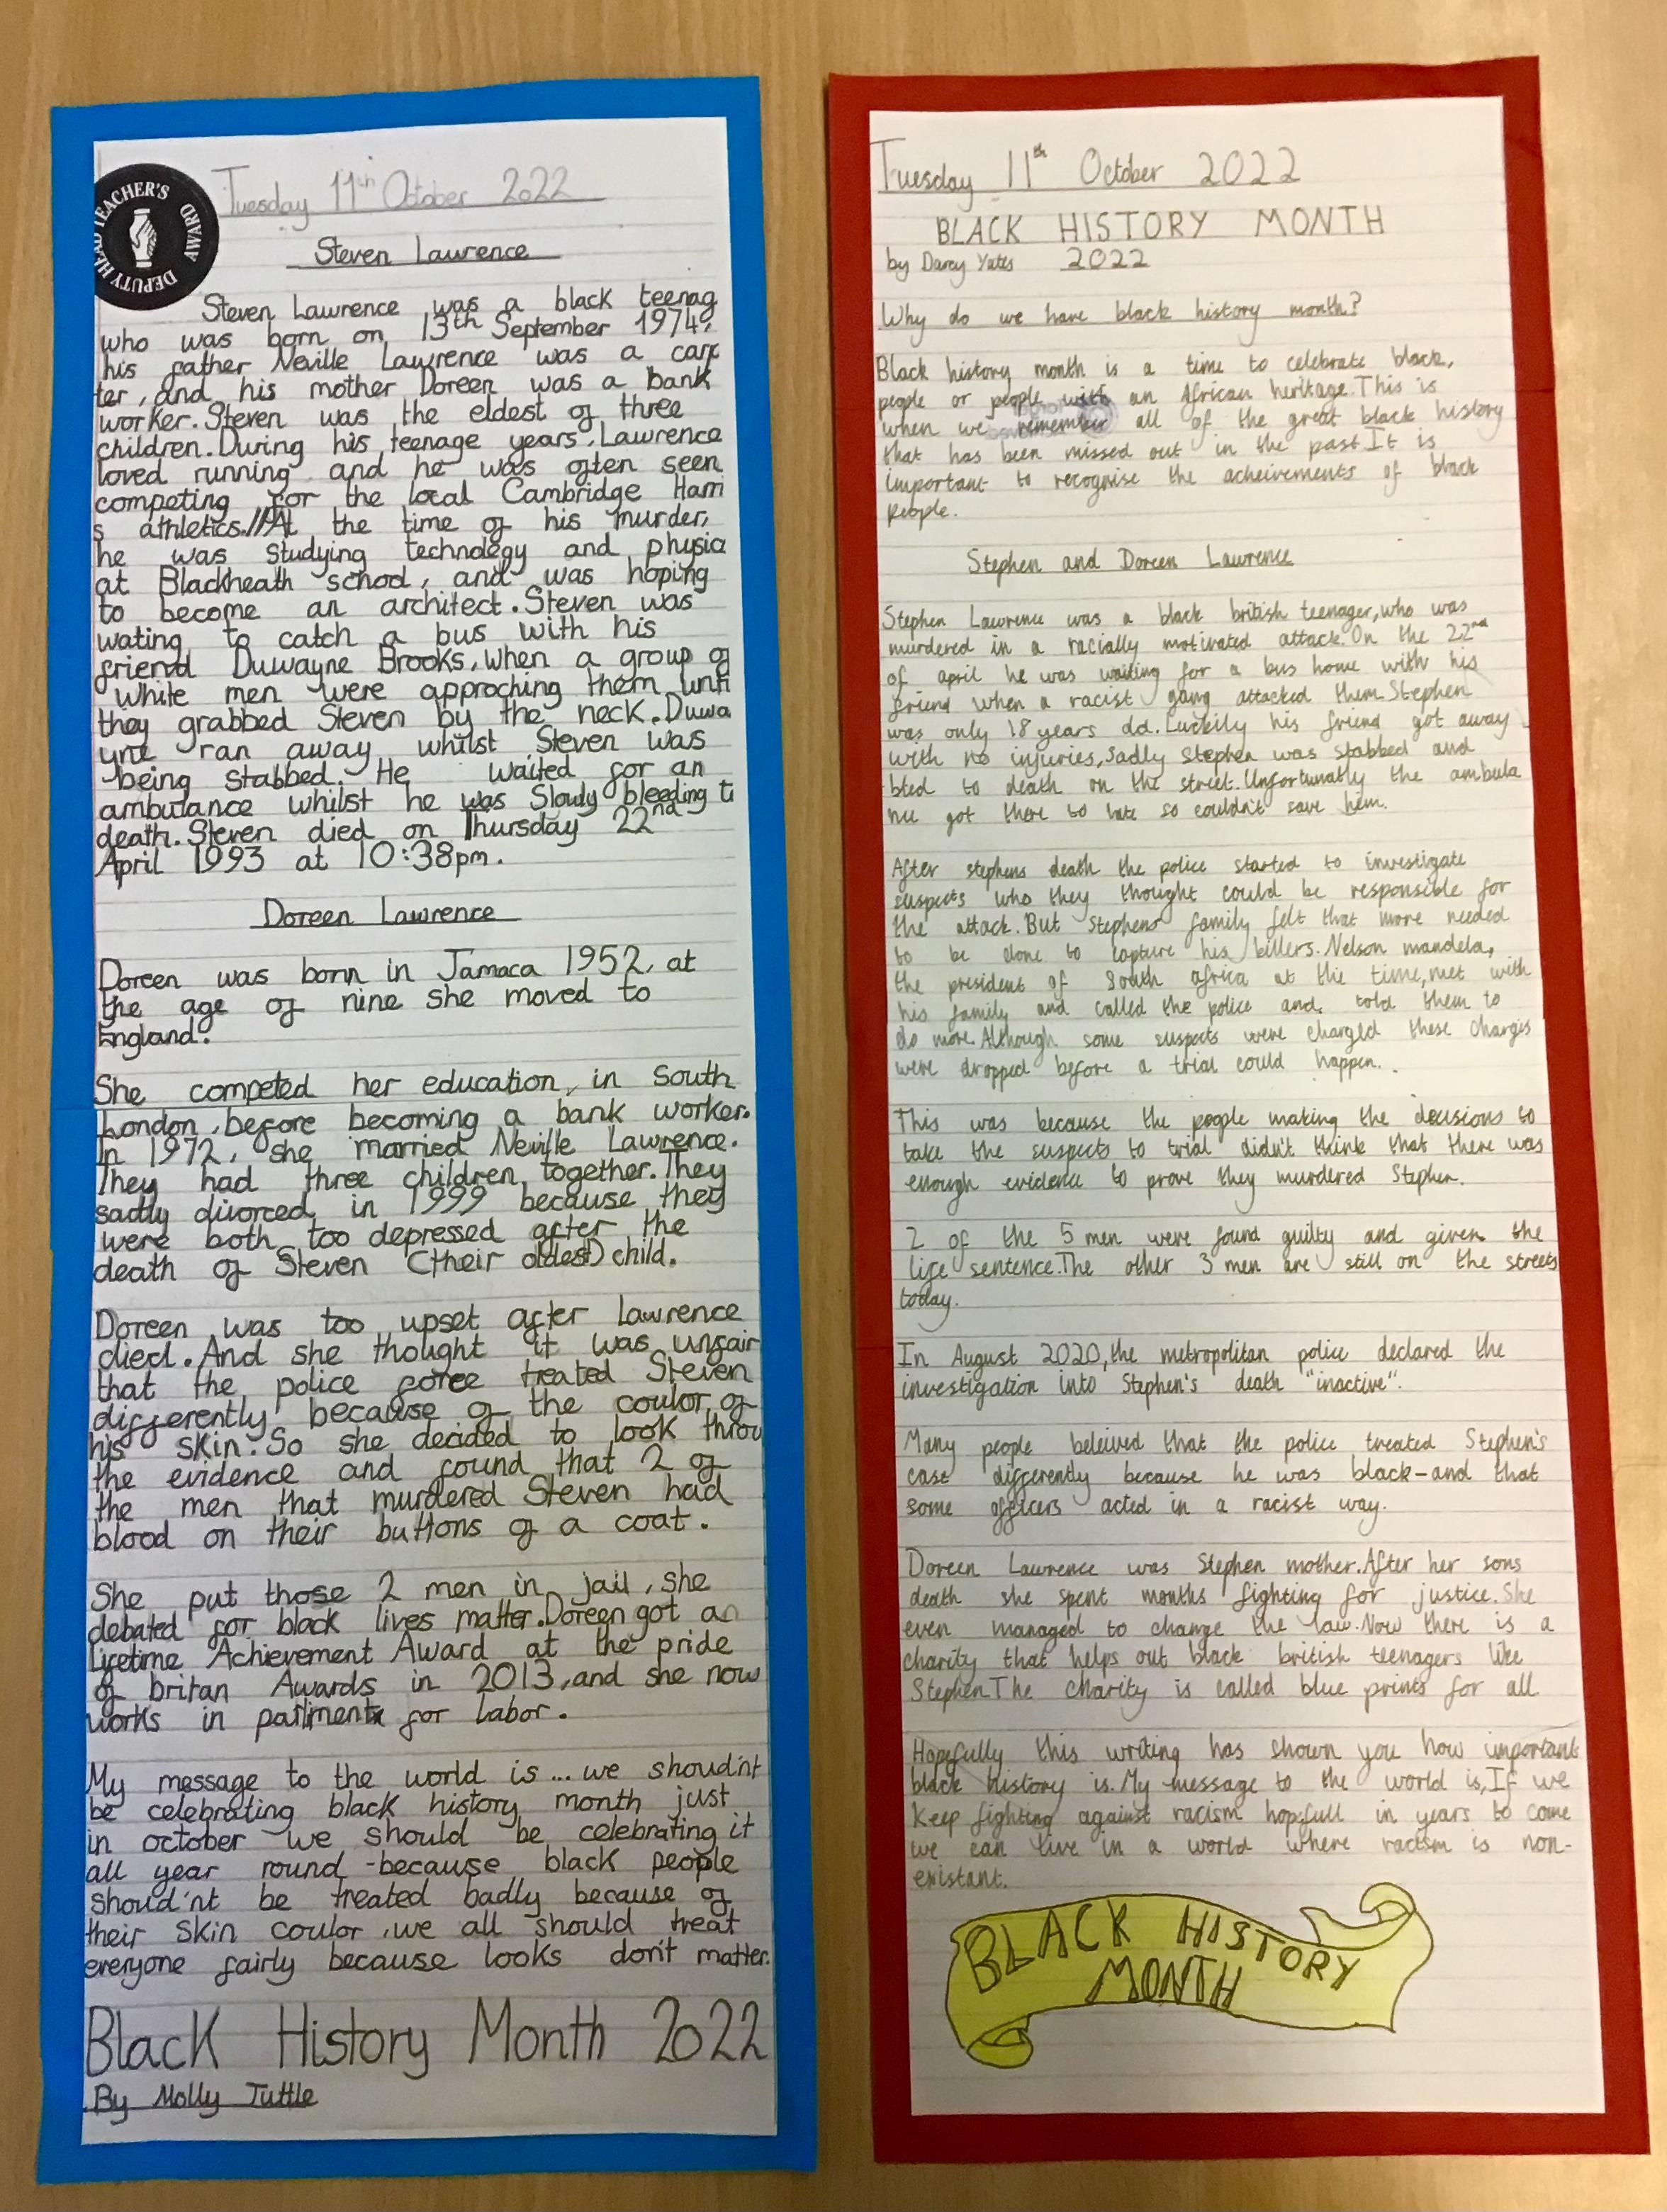 DEPUTY HEAD TEACHER'S AWARD
Tuesday 11th October 2022
Steven Lawrence
Steven Lawrence was a black teenag
who was born on 13th September 1974,
his father Neville Lawrence was a carp
ter, and his mother Doreen was a bank
worker. Steven was the eldest of three
children. During his teenage years, Lawrence
loved running and he was often seen
competing for the local Cambridge Harri
s athletics.//At the time of his murder,
he was studying technology and physic
at Blackheath school, and was hoping
to become an architect. Steven was
wating to catch a bus with his
friend Duwayne Brooks, when a group of
white men were approching them unti
they grabbed Steven by the neck. Duwa
yne ran away whilst Steven was
being stabbed. He waited for an
ambulance whilst he was Slowly bleeding t
death. Steven died on Thursday 22nd
April 1993 at 10:38pm.
Doreen Lawrence
Doreen was born in Jamaca 1952, at
the age of nine she moved to
England.
She competed her education, in South
London, before becoming a bank worker.
In 1972, she married Neville Lawrence.
They had three children together. They
sadly divorced in 1999 because they
were both too depressed after the
death of Steven (their oldest) child.
Doreen was too upset after Lawrence
died. And she thought it was unfair
that the police treated Steven
differently because of the coulor of
his skin. So she decided to look throu
the evidence and found that 2 of
the men that murdered Steven had
blood on their buttons of a coat.
She put those 2 men in jail, she
debated for black lives matter. Doreen got an
Lifetime Achievement Award at the pride
of britan Awards in 2013, and she now
works in parliment for labor.
My message to the world is... we should'nt
be celebrating black history month just
in october we should be celebrating it
all year round - because black people
should'nt be treated badly because of
their skin coulor, we all should treat
everyone fairly because looks don't matter.
Black History Month 2022
By Molly Tuttle
Tuesday 11th October 2022
BLACK HISTORY MONTH
by Darcy Yates 2022
Why do we have black history month?
Black history month is a time to celebrate black,
people or people with an African heritage. This is
when we remember all of the great black history
that has been missed out in the past. It is
important to recognise the acheivements of black
people.
Stephen and Doreen Lawrence
Stephen Lawrence was a black british teenager, who was
murdered in a racially motivated attack. On the 22nd
of april he was waiting for a bus home with his
friend when a racist gang attacked them. Stephen
was only 18 years old. Luckily his friend got away
with no injuries, sadly Stephen was stabbed and
bled to death on the street. Unfortunatly the ambula
nce got there to late so couldn't save him.
After stephens death the police started to investigate
suspects who they thought could be responsible for
the attack. But Stephens family felt that more needed
to be done to capture his killers. Nelson mandela,
the president of South africa at the time, met with
his family and called the police and told them to
do more. Although some suspects were charged these charges
were dropped before a trial could happen.
This was because the people making the decisions to
take the suspects to trial didn't think that there was
enough evidence to prove they murdered Stephen.
2 of the 5 men were found guilty and given the
life sentence. The other 3 men are still on the streets
today.
In August 2020, the metropolitan police declared the
investigation into Stephen's death "inactive".
Many people beleived that the police treated Stephen's
case differently because he was black - and that
some officers acted in a racist way.
Doreen Lawrence was Stephen mother. After her sons
death she spent months fighting for justice. She
even managed to change the law. Now there is a
charity that helps out black british teenagers like
Stephen. The charity is called blue prints for all
Hopefully this writing has shown you how important
black history is. My message to the world is, If we
Keep fighting against racism hopfull in years to come
we can live in a world where racism is non-
existant.
BLACK HISTORY
MONTH